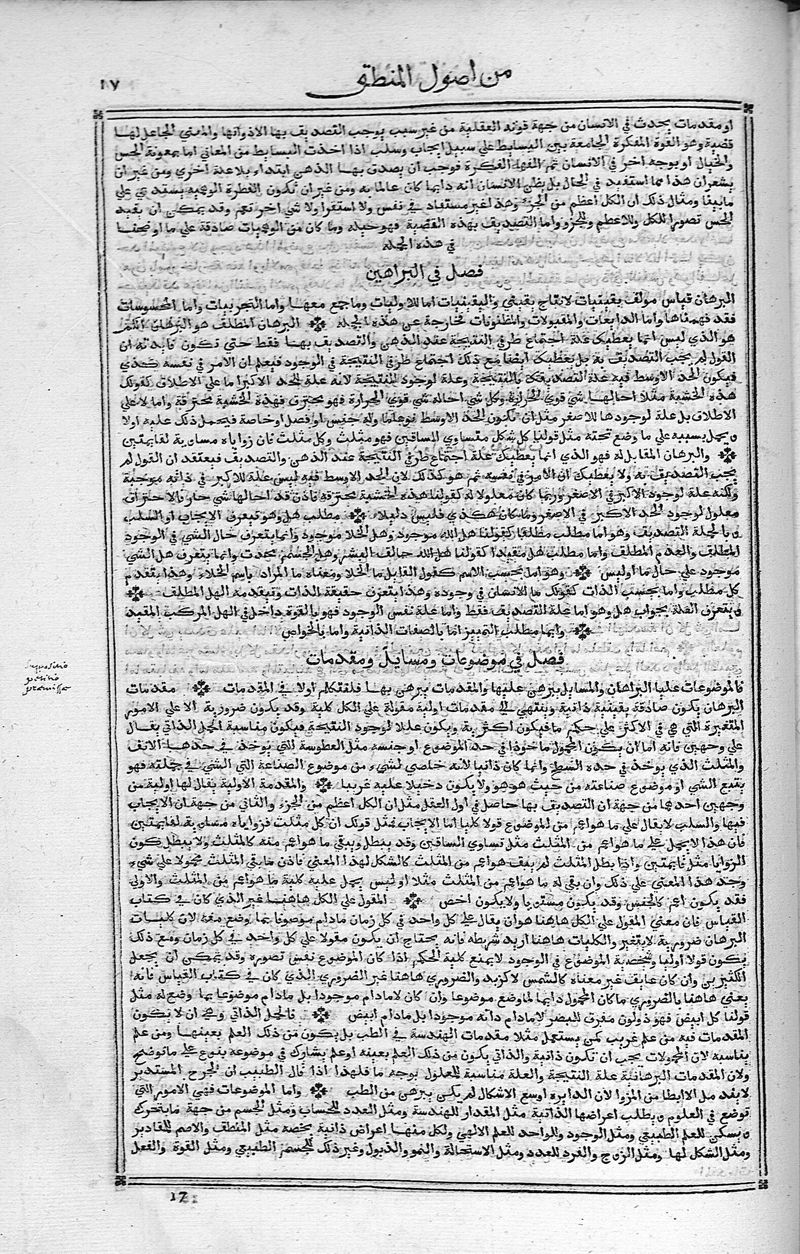 ١٧
من اصول المنطق
او مقدمات يحدث في الانسان من جهة قوته العقلية من غير سبب يوجب التصديق بها الا ذواتها والمعني الجاعل لها
قضية وهو القوة المفكرة الجامعة بين البسايط علي سبيل ايجاب وسلب اذا اخذت البسايط من المعاني اما بمعونة الحس
والخيال او بوجه اخر في الانسان ثم الفها المفكرة فوجب ان يصدق بها الذهن ابتداء بلا علة اخري ومن غير ان
يشعر ان هذا مما استفيد في الحال بل يظن الانسان انه دايما كان عالما به ومن غير ان تكون الفطرة الوهمية يستدعي علي
ما بينا ومثال ذلك ان الكل اعظم من الجزء وهذا غير مستفاد في نفس ولا استقرا ولا شي اخر نعم وقد يمكن ان يفيد
الحس تصورا للكل وللاعظم وللجزء واما التصديق بهذه القضية فهو جبلة وما كان من الوهميات صادقة علي ما اوضحنا
في هذه الجملة
فصل في البراهين
البرهان قياس مولف يقينيات لانتاج يقيني واليقينيات اما للاوليات وما جمع معها واما التجربيات واما المحسوسات
فقد فهمناها واما الذايعات والمقبولات والمظنونات فخارجة عن هذه الجملة البرهان المطلق هو البرهان اللم
هو الذي ليس انما يعطيك علة اجتماع طرفي النتيجة عند الذهن والتصديق بها فقط حتي تكون فايدته ان
القول لم يجب التصديق به بل يعطيك ايضا مع ذلك اجتماع طرفي النتيجة في الوجود فيعلم ان الامر في نفسه كذي
فيكون الحد الاوسط فيه علة لتصديقك بالنتيجة وعلة لوجود النتيجة لانه علة للحد الاكبر اما علي الاطلاق كقولك
هذه الخشبة مثلا احالها شي قوي الحرارة وكل شي احاله شي قوي الحرارة فهو محترق فهذه الخشبة محترقة واما لا علي
الاطلاق بل علة لوجودها للاصغر مثل ان تكون الحد الاوسط نوعا ما وله جنس او فصل او خاصة فيحمل ذلك عليه اولا
ويحمل بسببه علي ما وضع تحته مثل قولنا كل شكل متساوي الساقين فهو مثلث وكل مثلث فان زواياه مساوية لقايمتين
والبرهان المقابل له فهو الذي انما يعطيك علة اجتماع طرفي النتيجة عند الذهن والتصديق فيعتقد ان القول لم
يجب التصديق به ولا يعطيك ان الامر في نفسه لم هو كذلك لان الحد الاوسط فيه ليس علة للاكبر في ذاته موجبة
ولكنه علة لوجود الاكبر في الاصغر وربما كان معلولا له كقولنا هذه الخشبة محترقة فاذن قد احالها شي حار والاحتراق
معلول لوجود الحد الاكبر في الاصغر وما كان هكذي فليس دليلا مطلب هل وهو تعرف الايجاب او السلب
وبالجملة التصديق وهو اما مطلب مطلقا كقولنا هل الله موجود وهل الخلا موجود وانما يتعرف حال الشي في الوجود
المطلق والعدم المطلق واما مطلب هل مقيدا كقولنا هل الله خالق البشر وهل الجسم محدث وانما يتعرف هل الشي
موجود علي حال ما او ليس وهو اما بحسب الاسم كقول القايل ما الخلا ومعناه ما المراد باسم الخلاء وهذا يتقدم
كل مطلب واما بحسب الذات كقولك ما الانسان في وجوده وهذا يتعرف حقيقة الذات ويتقدمه الهل المطلق
ويتعرف العلة بجواب هل وهو اما علة التصديق فقط واما علة نفس الوجود فهو بالقوة داخل في الهل المركب المقيد
وايما مطلب التمييز اما بالصفات الذاتية واما بالخواص
فصل في موضوعات ومسايل ومقدمات
فالموضوعات عليها البراهان والمسايل يبرهن عليها والمقدمات يبرهن بها فلنتكلم اولا في المقدمات مقدمات
البرهان يكون صادقة يقينية ذاتية وينتهي في مقدمات اولية مقولة علي الكل كلية وقد يكون ضرورية الا علي الامور
المتغيرة التي هي في الاكثر علي حكم ما فيكون اكثرية ويكون عللا لوجود النتيجة فيكون مناسبة الحمل الذاتي يقال
علي وجهين فانه اما ان يكون المحمول ماخوذا في حد الموضوع او جنسه مثل الفطوسة التي يوخذ في حدها الانف
والمثلث الذي يوخذ في حده السطح وانما كان ذاتيا لانه خاص لشيء من موضوع الصناعة التي الشي في جملته فهو
يتبع الشي او موضوع صناعته من حيث هو هو ولا يكون دخيلا عليه غريبا والمقدمة الاولية يقال لها اولية من
وجهين احدهما من جهة ان التصديق بها حاصل في اول العقل مثل ان الكل اعظم من الجزء والثاني من جهة ان الايجاب
فيها والسلب لا يقال علي ما هو اعم من الموضوع قولا كليا اما الايجاب فمثل قولك ان كل مثلث فزواياه مساوية لقايمتين
فان هذا لا يحمل علي ما هو اعم من المثلث مثل تساوي الساقين وقد يبطل ويبقي ما هو اعم منه كالمثلث ولا يبطل كون
الزوايا مثل قايمتين واذا بطل المثلث لم يبق هو اعم من المثلث كالشكل لهذا المعني فاذن ما بقي المثلث محمولا علي شيء
وجد هذا المعني علي ذلك وان بقي له ما هو اعم من المثلث مثلا او ليس يحمل عليه كلية ما هو اعم من المثلث والاولي
فقد يكون اعم كالجنس وقد يكون مستويا ولا يكون اخص المقول علي الكل هاهنا غير الذي كان في كتاب
القياس فان معني المقول علي الكل هاهنا هو ان يقال علي كل واحد في كل زمان ما دام موصوفا بما وضع معه لان كليات
البرهان ضرورية لا يتغير والكليات هاهنا اريد شريطة فانه يحتاج ان يكون مقولا علي كل واحد في كل زمان ومع ذلك
يكون قولا اوليا وشخصية الموضوع في الوجود لا يمنع كلية الحكم اذا كان الموضوع نفس تصوره وقد يمكن ان يجعل
الكثيرين وان كان عايق غير معناه كالشمس لا كزيد والضروري هاهنا غير الضروري الذي كان في كتاب القياس فانه
يعني هاهنا بالضروري ما كان المحمول دايما لما وضع موضوعا وان كان لا مادام موجودا بل مادام موضوعا بما وضع له مثل
قولنا كل ابيض فهو ذو لون مفرق للبصر لا مادام ذاته موجودا بل مادام ابيض فالحمل الذاتي وهي ان لا تكون
المقدمات فيه من علم غريب كمن يستعمل مثلا مقدمات الهندسة في الطب بل يكون من ذلك العلم بعينها ومن علم
يناسبه لان المحمولات يجب ان تكون ذاتية والذاتي يكون من ذلك العلم بعينه او علم يشارك في موضوعه بنوع علي ما نوضح
ولان المقدمات البرهانية علة النتيجة والعلة مناسبة للمعلول بوجه ما فلهذا اذا قال الطبيب ان الجرح المستدير
لا يندمل الا ابطا من المزوا لان الدايرة اوسع الاشكال لم يكن يبرهن من الطب واما الموضوعات فهي الامور التي
توضع في العلوم ويطلب اعراضها الذاتية مثل المقدار للهندسة ومثل العدد للحساب ومثل الجسم من جهة ما يتحرك
ويسكن للعلم الطبيعي ومثل الوجود والواحد للعلم الالهي ولكل منها اعراض ذاتية يخصه مثل المنطق والاصم للمقادير
ومثل الشكل لها ومثل الزوج والفرد للعدد ومثل الاستحالة والنمو والذبول وغير ذلك للجسم الطبيعي ومثل القوة والفعل
17